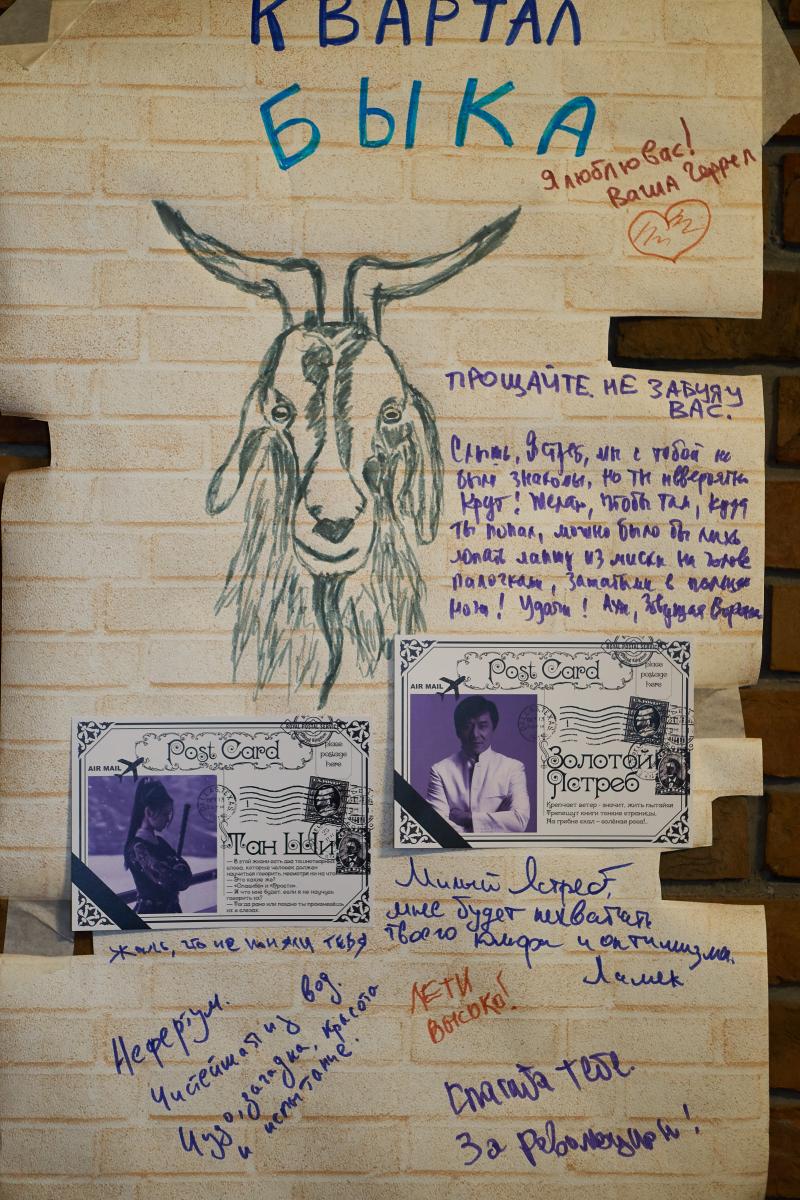 КВАРТАЛ
БЫКА
Я люблю вас!
ВАША Геррел
ПРОЩАЙТЕ. НЕ ЗАБУДУ
ВАС.
Слышь, Ястреб, мы с тобой не
были знакомы, но ты невероятно
крут! Желаю, чтобы там, куда
ты попал, можно было бы лишь
лопать лапшу из миски на голове
палочками, зажатыми в
Удачи!
Post Card
AIR MAIL
place
postage
here
Золотой
Ястреб
Крепчает ветер - значит, жить пытайся
Трепещут книги тонкие страницы.
На гребне скал - солёная роса!..
Post Card
AIR MAIL
place
postage
here
Тан Ши
— В этой жизни есть два тошнотворных
слова, которые человек должен
научиться говорить, несмотря ни на что.
— Это какие же?
— «Спасибо» и «Прости».
— И что мне будет, если я не научусь
говорить их?
— Тогда рано или поздно ты произнесёшь
их в слезах.
Милый Ястреб,
мне будет не хватать
твоего юмора и оптимизма.
Ламек
Жаль, что не пойму тебя
ЛЕТИ
ВЫСОКО!
Нефертум.
Чистейшая из вод.
Чудо, загадка, красота
и испытание.
Спасибо тебе
За революции!